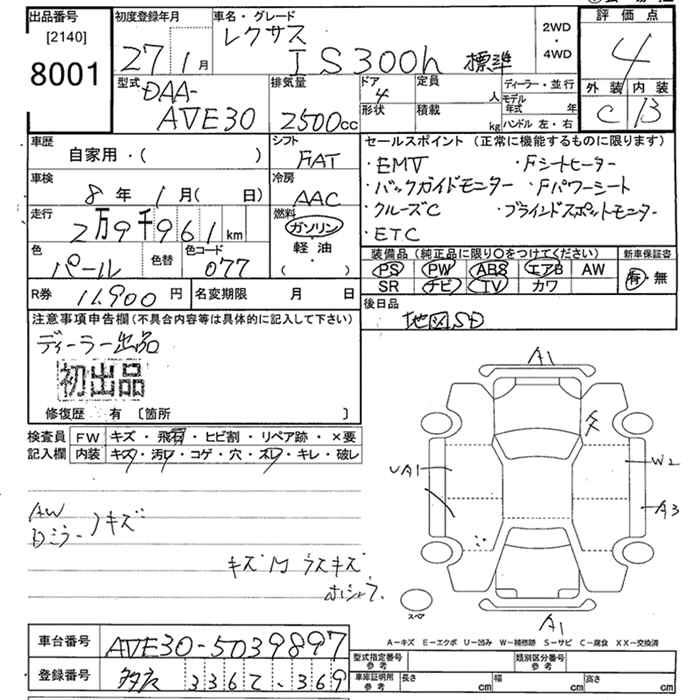 出品番号
[2140]
8001
初度登録年月
27年 1月
車名・グレード
レクサス
IS300h 標準
2WD
・
4WD
評価点
4
外装 内装
C B
型式
DAA-
AVE30
排気量
2500cc
ドア
4
定員
人
形状
積載
kg
ディーラー・並行
モデル年式 年
ハンドル 左・右
車歴
自家用・( )
シフト
FAT
車検
8年 1月( 日)
冷房
AAC
走行
2万9千961km
燃料
ガソリン
軽油
( )
色
パール
色替
色コード
077
R券 11,900円
名変期限 月 日
セールスポイント (正常に機能するものに限ります)
・EMV ・Fシートヒーター
・バックガイドモニター ・Fパワーシート
・クルーズC ・ブラインドスポットモニター
・ETC
装備品 (純正品に限り○をつけてください) 新車保証書
PS PW ABS エアB AW 有・無
SR ナビ TV カワ
後日品
地図SD
注意事項申告欄 (不具合内容等は具体的に記入して下さい)
ディーラー出品
初出品
修復歴 有 〔箇所 〕
検査員 FW キズ・飛石・ヒビ割・リペア跡・×要
記入欄 内装 キズ・汚レ・コゲ・穴・スレ・キレ・破レ
AW
Dミラーキズ
キズ M ウスキズ
A1
UA1
W2
A3
A1
スペア
A-キズ E-エクボ U-凹み W-補修跡 S-サビ C-腐食 XX-交換済
車台番号 AVE30-5039897
登録番号 336 369
型式指定番号 参考
類別区分番号 参考
車庫証明所 参考 長さ cm 幅 cm 高さ cm